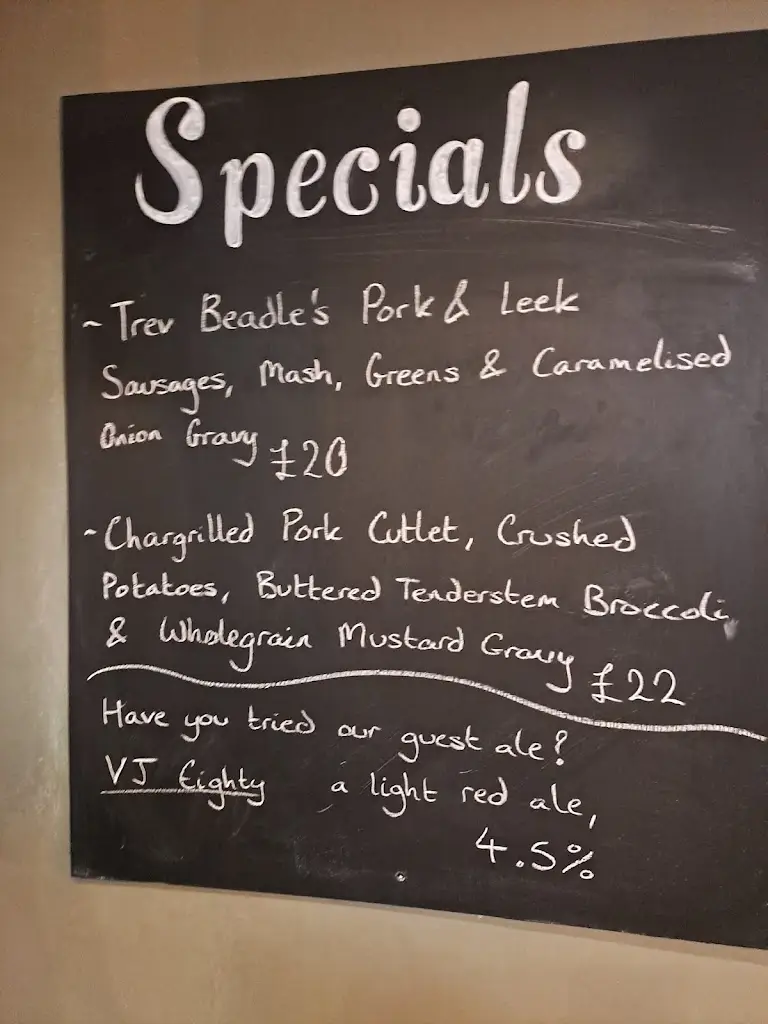 Specials
~ Trev Beadle's Pork & Leek
Sausages, Mash, Greens & Caramelised
Onion Gravy £20
~ Chargrilled Pork Cutlet, Crushed
Potatoes, Buttered Tenderstem Broccoli,
& Wholegrain Mustard Gravy £22
Have you tried our guest ale?
VJ Eighty a light red ale,
4.5%